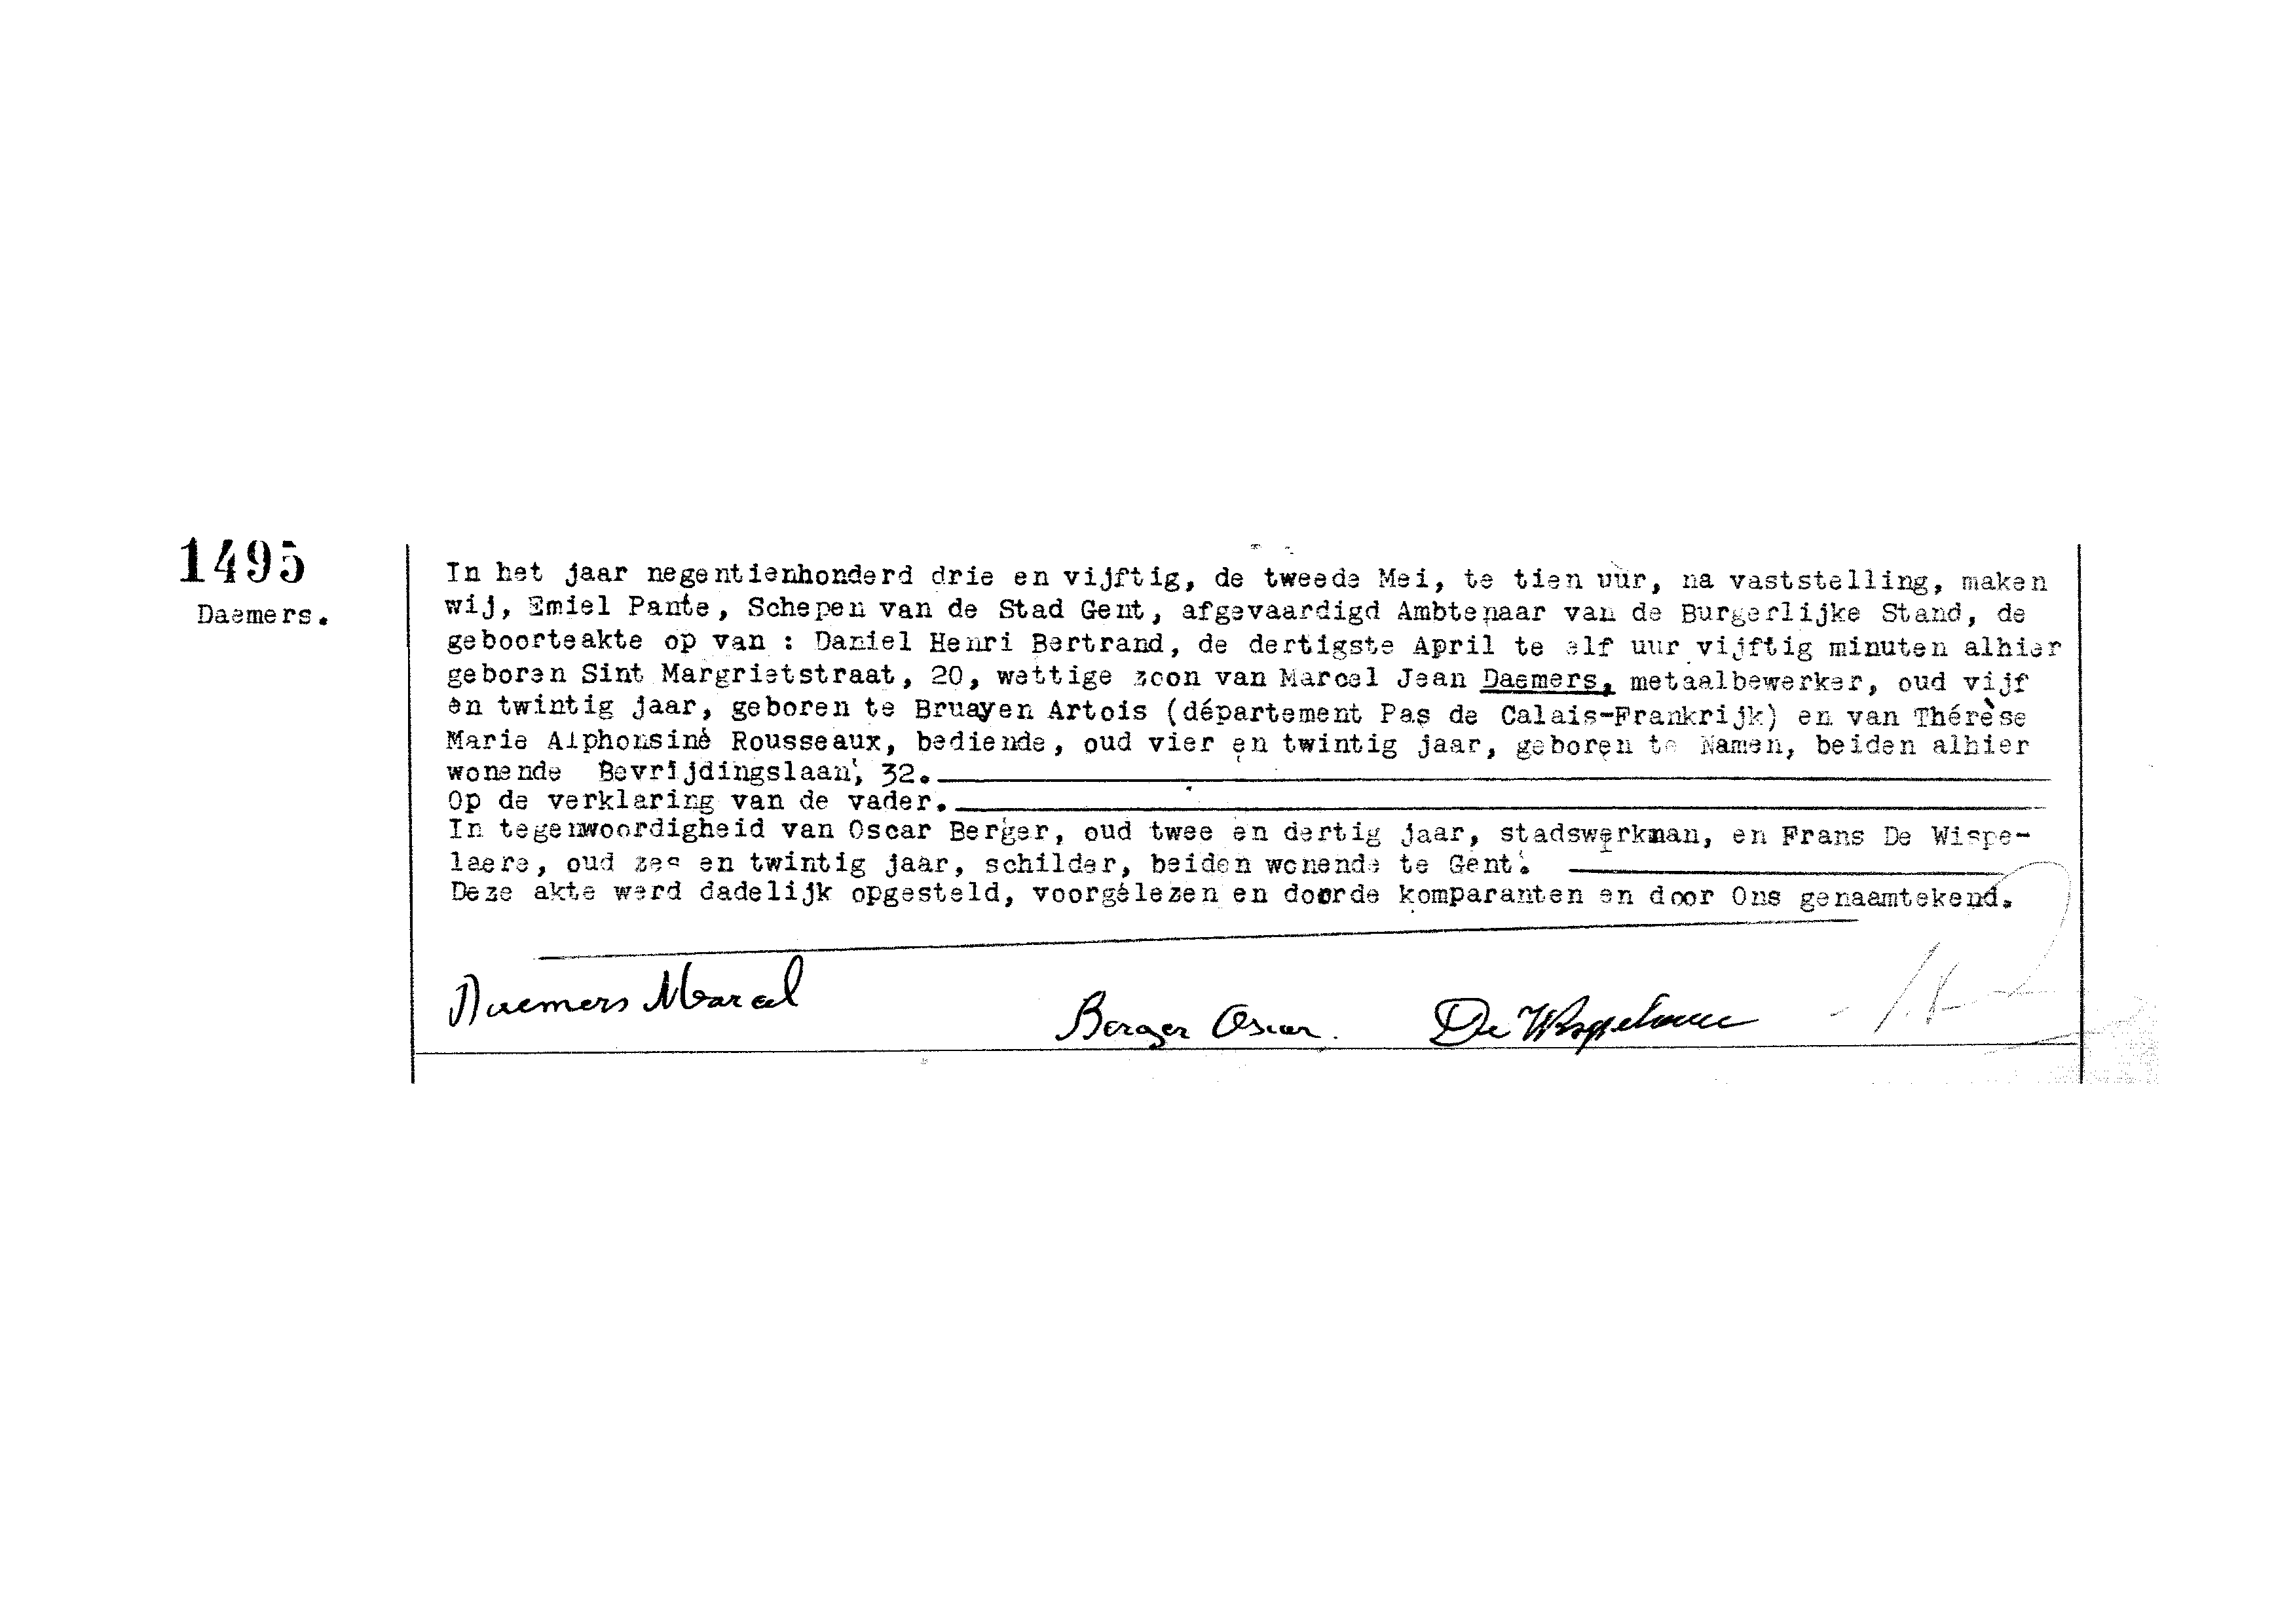 1495
Daemers.
In het jaar negentienhonderd drie en vijftig, de tweede Mei, te tien uur, na vaststelling, maken
wij, Emiel Pante, Schepen van de Stad Gent, afgevaardigd Ambtenaar van de Burgerlijke Stand, de
geboorteakte op van : Daniel Henri Bertrand, de dertigste April te elf uur vijftig minuten alhier
geboren Sint Margrietstraat, 20, wettige zoon van Marcel Jean Daemers, metaalbewerker, oud vijf
en twintig jaar, geboren te Bruayen Artois (département Pas de Calais-Frankrijk) en van Thérèse
Marie Alphonsine Rousseaux, bediende, oud vier en twintig jaar, geboren te Namen, beiden alhier
wonende Bevrijdingslaan, 32.
Op de verklaring van de vader.
In tegenwoordigheid van Oscar Berger, oud twee en dertig jaar, stadswerkman, en Frans De Wispe-
laere, oud zes en twintig jaar, schilder, beiden wonende te Gent.
Deze akte werd dadelijk opgesteld, voorgelezen en doorde komparanten en door Ons genaamtekend.
Daemers Marcel
Berger Oscar. De Wispelaere